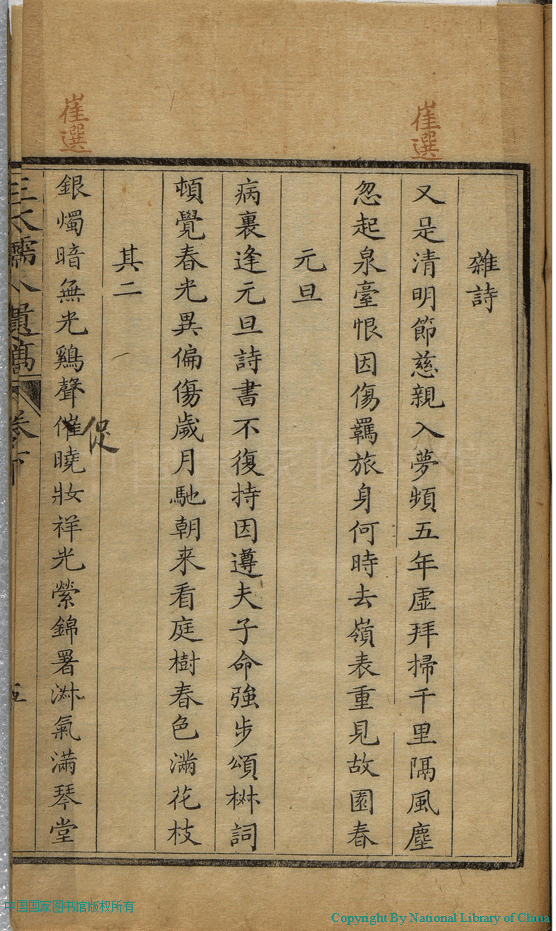 崔選
崔選
雜詩
又是清明節慈親入夢頻五年虛拜掃千里隔風塵
忽起泉臺恨因傷羈旅身何時去嶺表重見故園春
元旦
病裏逢元旦詩書不復持因遵夫子命強步頌椒詞
頓覺春光異偏傷歲月馳朝来看庭樹春色滿花枝
其二
銀燭暗無光鷄聲催曉妝祥光縈錦署淋氣滿琴堂
促
三水孺人遺稿
卷下
五
中国国家图书馆版权所有
Copyright By National Library of China